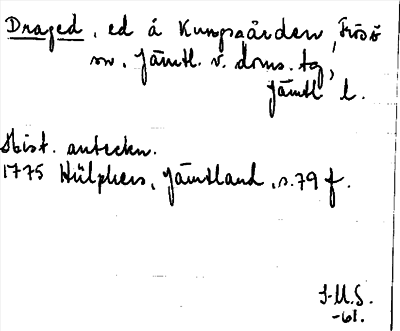 Draged, ed å Kungsgården, Frösö
sn, Jämtl. v. doms. tg,
Jämtl l.
Hist. anteckn.
1775 Hülphers, Jämtland, s. 79 f.
I.M.S.
-61.